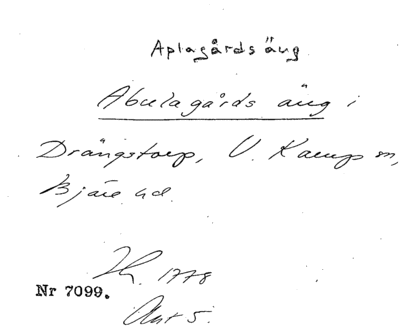 Aplagårdsäng
Abulagårds äng i
Drängstorp, V. Karups sn,
Bjäre hd.
1778
Nr 7099.
Akt 5.